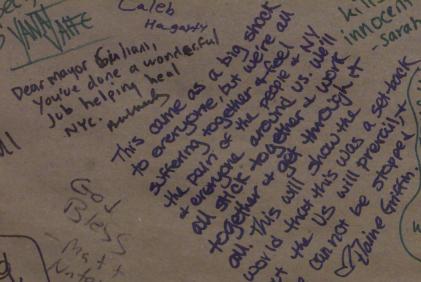 Caleb
Hagarty
killi
innocent
-sarah
Dear mayor Giuliani,
You've done a wonderful
Job helping heal
NYC.
This came as a big shock
to everyone, but we're all
suffering together & feel
the pain of the people of NY
& everyone around us. We'll
all stick together & work
together & get through it
all. This will show the
world that this was a set-back
but the US will prevail, &
cannot be stopped
Elaine Griffin.
God
Bless
- Matt